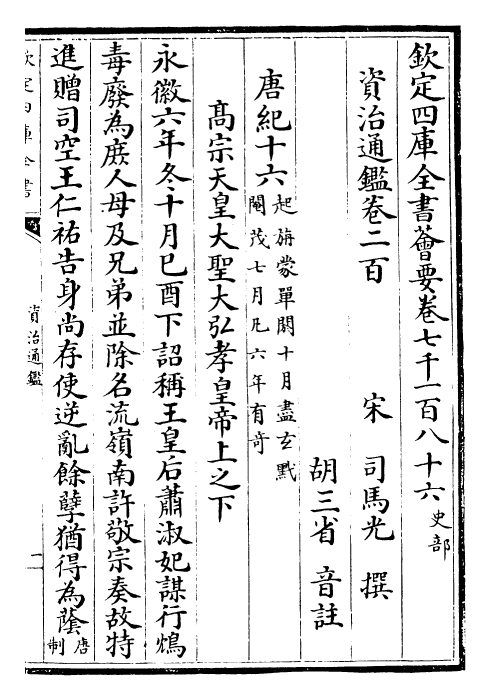 欽定四庫全書薈要卷七千一百八十六史部
資治通鑑卷二百
宋 司馬光 撰
胡三省 音註
唐紀十六起旃蒙單閼十月盡玄黓
閹茂七月凡六年有奇
高宗天皇大聖大弘孝皇帝上之下
永徽六年冬十月己酉下詔稱王皇后蕭淑妃謀行鴆
毒廢為庶人母及兄弟並除名流嶺南許敬宗奏故特
進贈司空王仁祐告身尚存使逆亂餘孽猶得為蔭唐
制
欽定四庫全書
資治通鑑
一